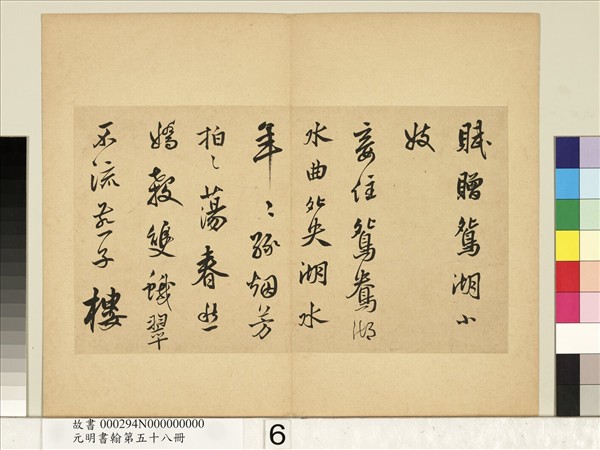 賦贈鴛湖小
妓
妾住鴛鴦湖
水曲夗央湖水
年〻綠烟芳
拍〻蕩春愁
嬌雙蛾翠
不流燕子樓
故書 000294N000000000
元明書翰第五十八冊
6